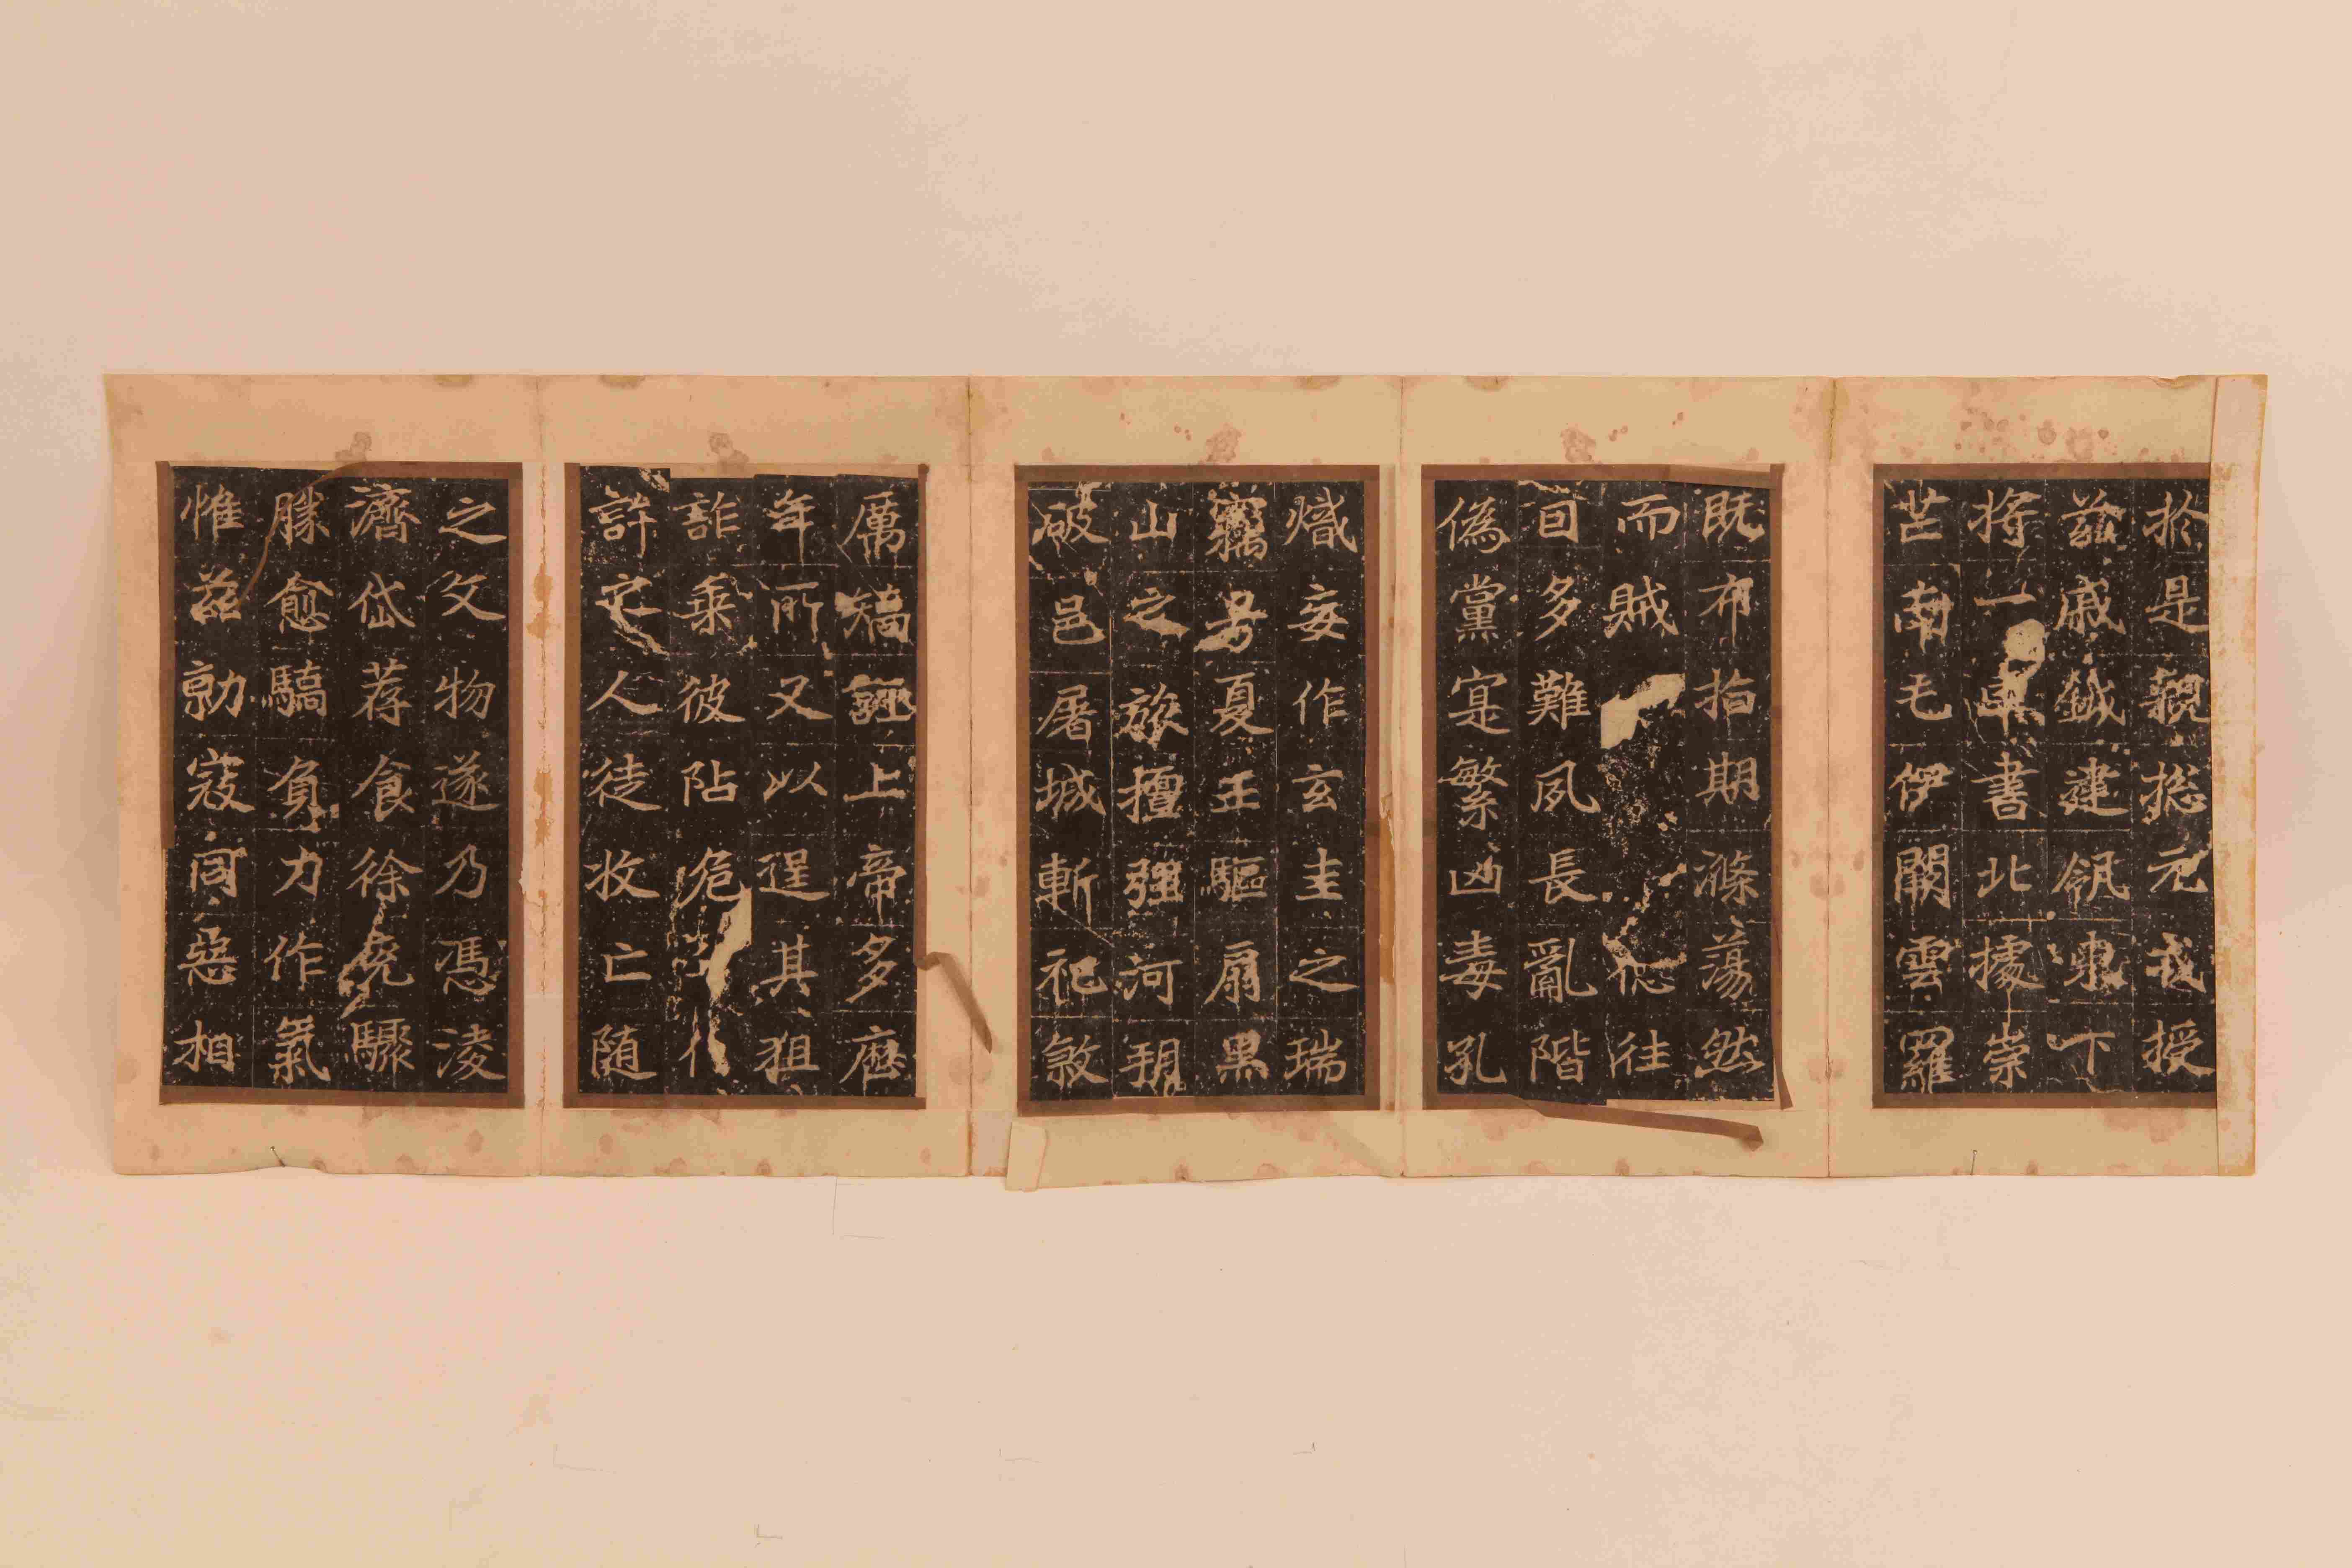 於是親揔元戎授
茲戚鉞建東下
將一車書北據崇
芒南屯伊闕雲羅
既布指期滌蕩然
而賊往
因多難夙長亂階
偽黨寔繁凶毒孔
熾妄作玄圭之瑞
竊号夏王驅扇黑
山之旅擅強河朔
破邑屠城斬祀煞
厲矯誣上帝多歷
年所又以逞其狙
詐乘彼阽危
許人徒收亡随
之文物遂乃憑淩
濟岱荐食徐兗驟
勝愈驕負力作氣
惟茲勍寇同惡相